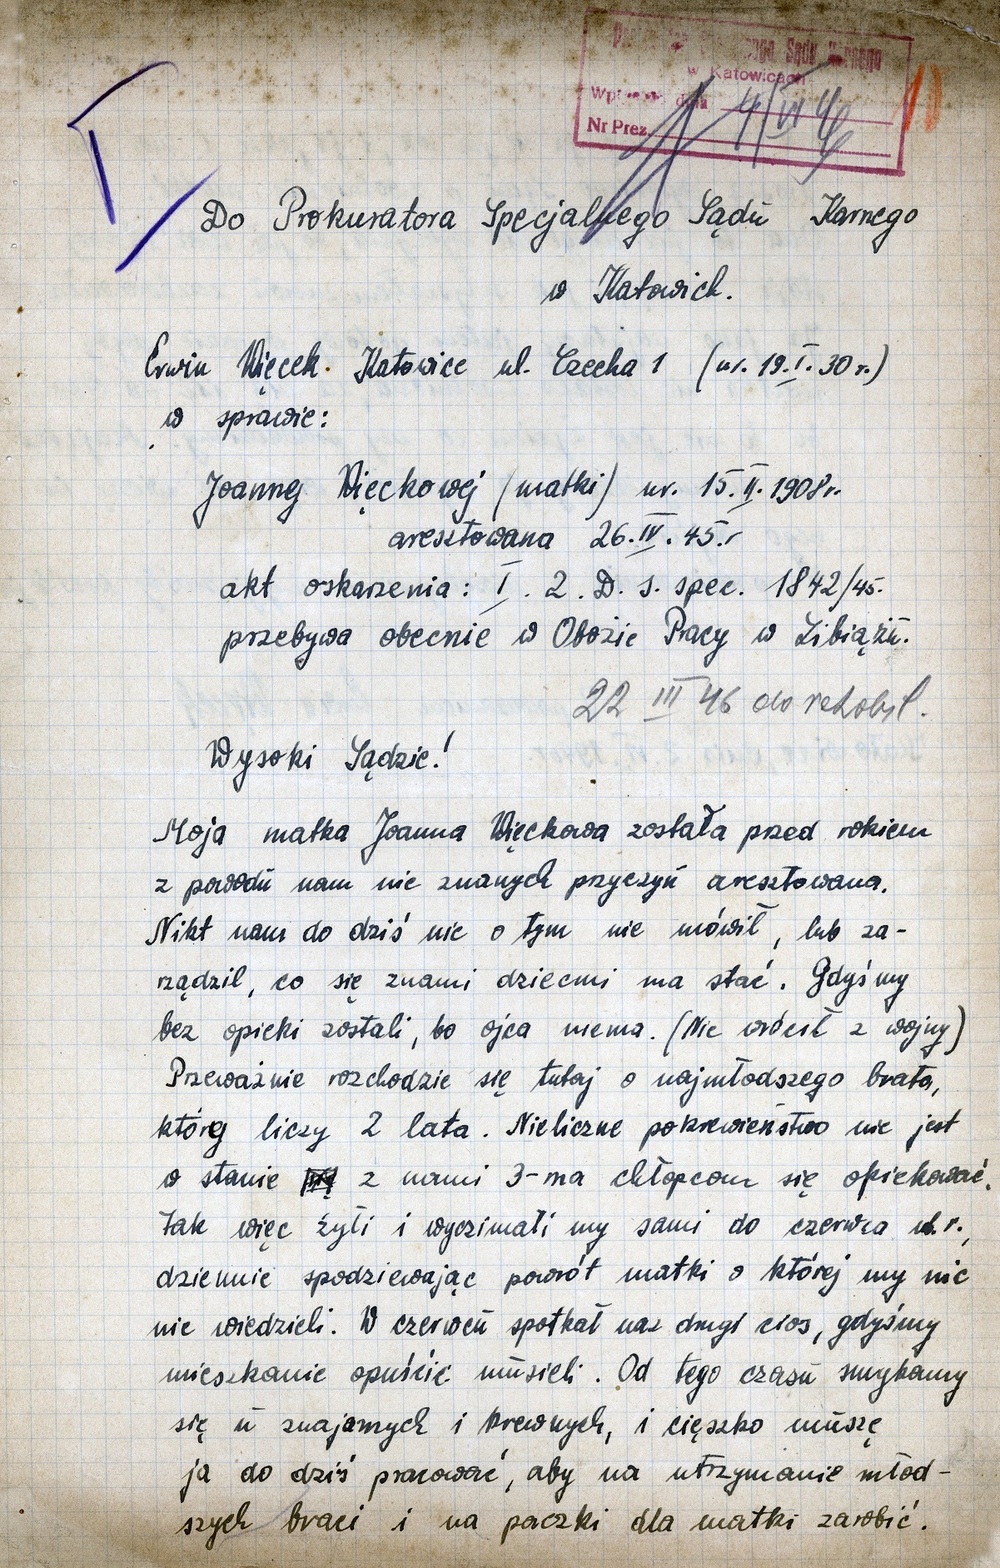 Specjalnego Sądu Karnego
w Katowicach
Wpłynęło dnia 4/VI 46
Nr Prez.
Do Prokuratora Specjalnego Sądu Karnego
w Katowich.
Erwin Więcek. Katowice ul. Czecha 1 (ur. 19.I.30 r.)
w sprawie:
Joanny Więckowej (matki) ur. 15.II.1908r.
aresztowana 26.IV.45.r
akt oskarzenia: I. 2. D. s. spec. 1842/45.
przebywa obecnie w Obozie Pracy w Libiążu.
22 III 46 do rehabil.
Wysoki Sądzie!
Moja matka Joanna Więckowa została przed rokiem
z powodu nam nie znanych przyczyn aresztowana.
Nikt nam do dziś nic o tym nie mówił, lub za-
rządzil, co się znami dziecmi ma stać. Gdyśmy
bez opieki zostali, bo ojca niema. (Nie wrócił z wojny)
Przeważnie rozchodzie się tutaj o najmłodszego brata,
któryg liczy 2 lata. Nieliczne pokrewieństwo nie jest
w stanie z nami 3-ma chłopcom się opiekować.
Tak więc żyli i wyczimali my sami do czerwca ub.r.,
dziennie spodziewając powrót matki o której my nic
nie wiedzieli. W czerwcu spotkał nas drugi cios, gdyśmy
mieszkanie opuścić musieli. Od tego czasu smykamy
się u znajamych i krewnych, i cięszko muszę
ja do dziś pracować, aby na utrzymanie młod-
szych braci i na paczki dla matki zarobić.